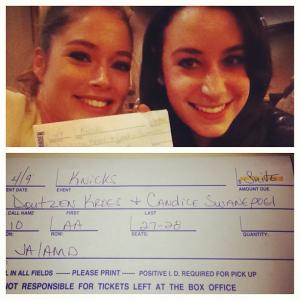 4/9 KNICKS Suite
ENT DATE EVENT AMOUNT DUE
DOUTZEN KROES + CANDICE SWANEPOEL
CALL NAME FIRST LAST
10 AA 27-28 1
ROW: SEATS: QUANTITY:
JA/AMD
L IN ALL FIELDS — PLEASE PRINT — POSITIVE I.D. REQUIRED FOR PICK UP
NOT RESPONSIBLE FOR TICKETS LEFT AT THE BOX OFFICE